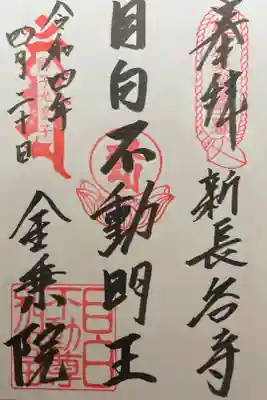 奉拝
新長谷寺
目白不動明王
令和四年
四月二十日
金乗院